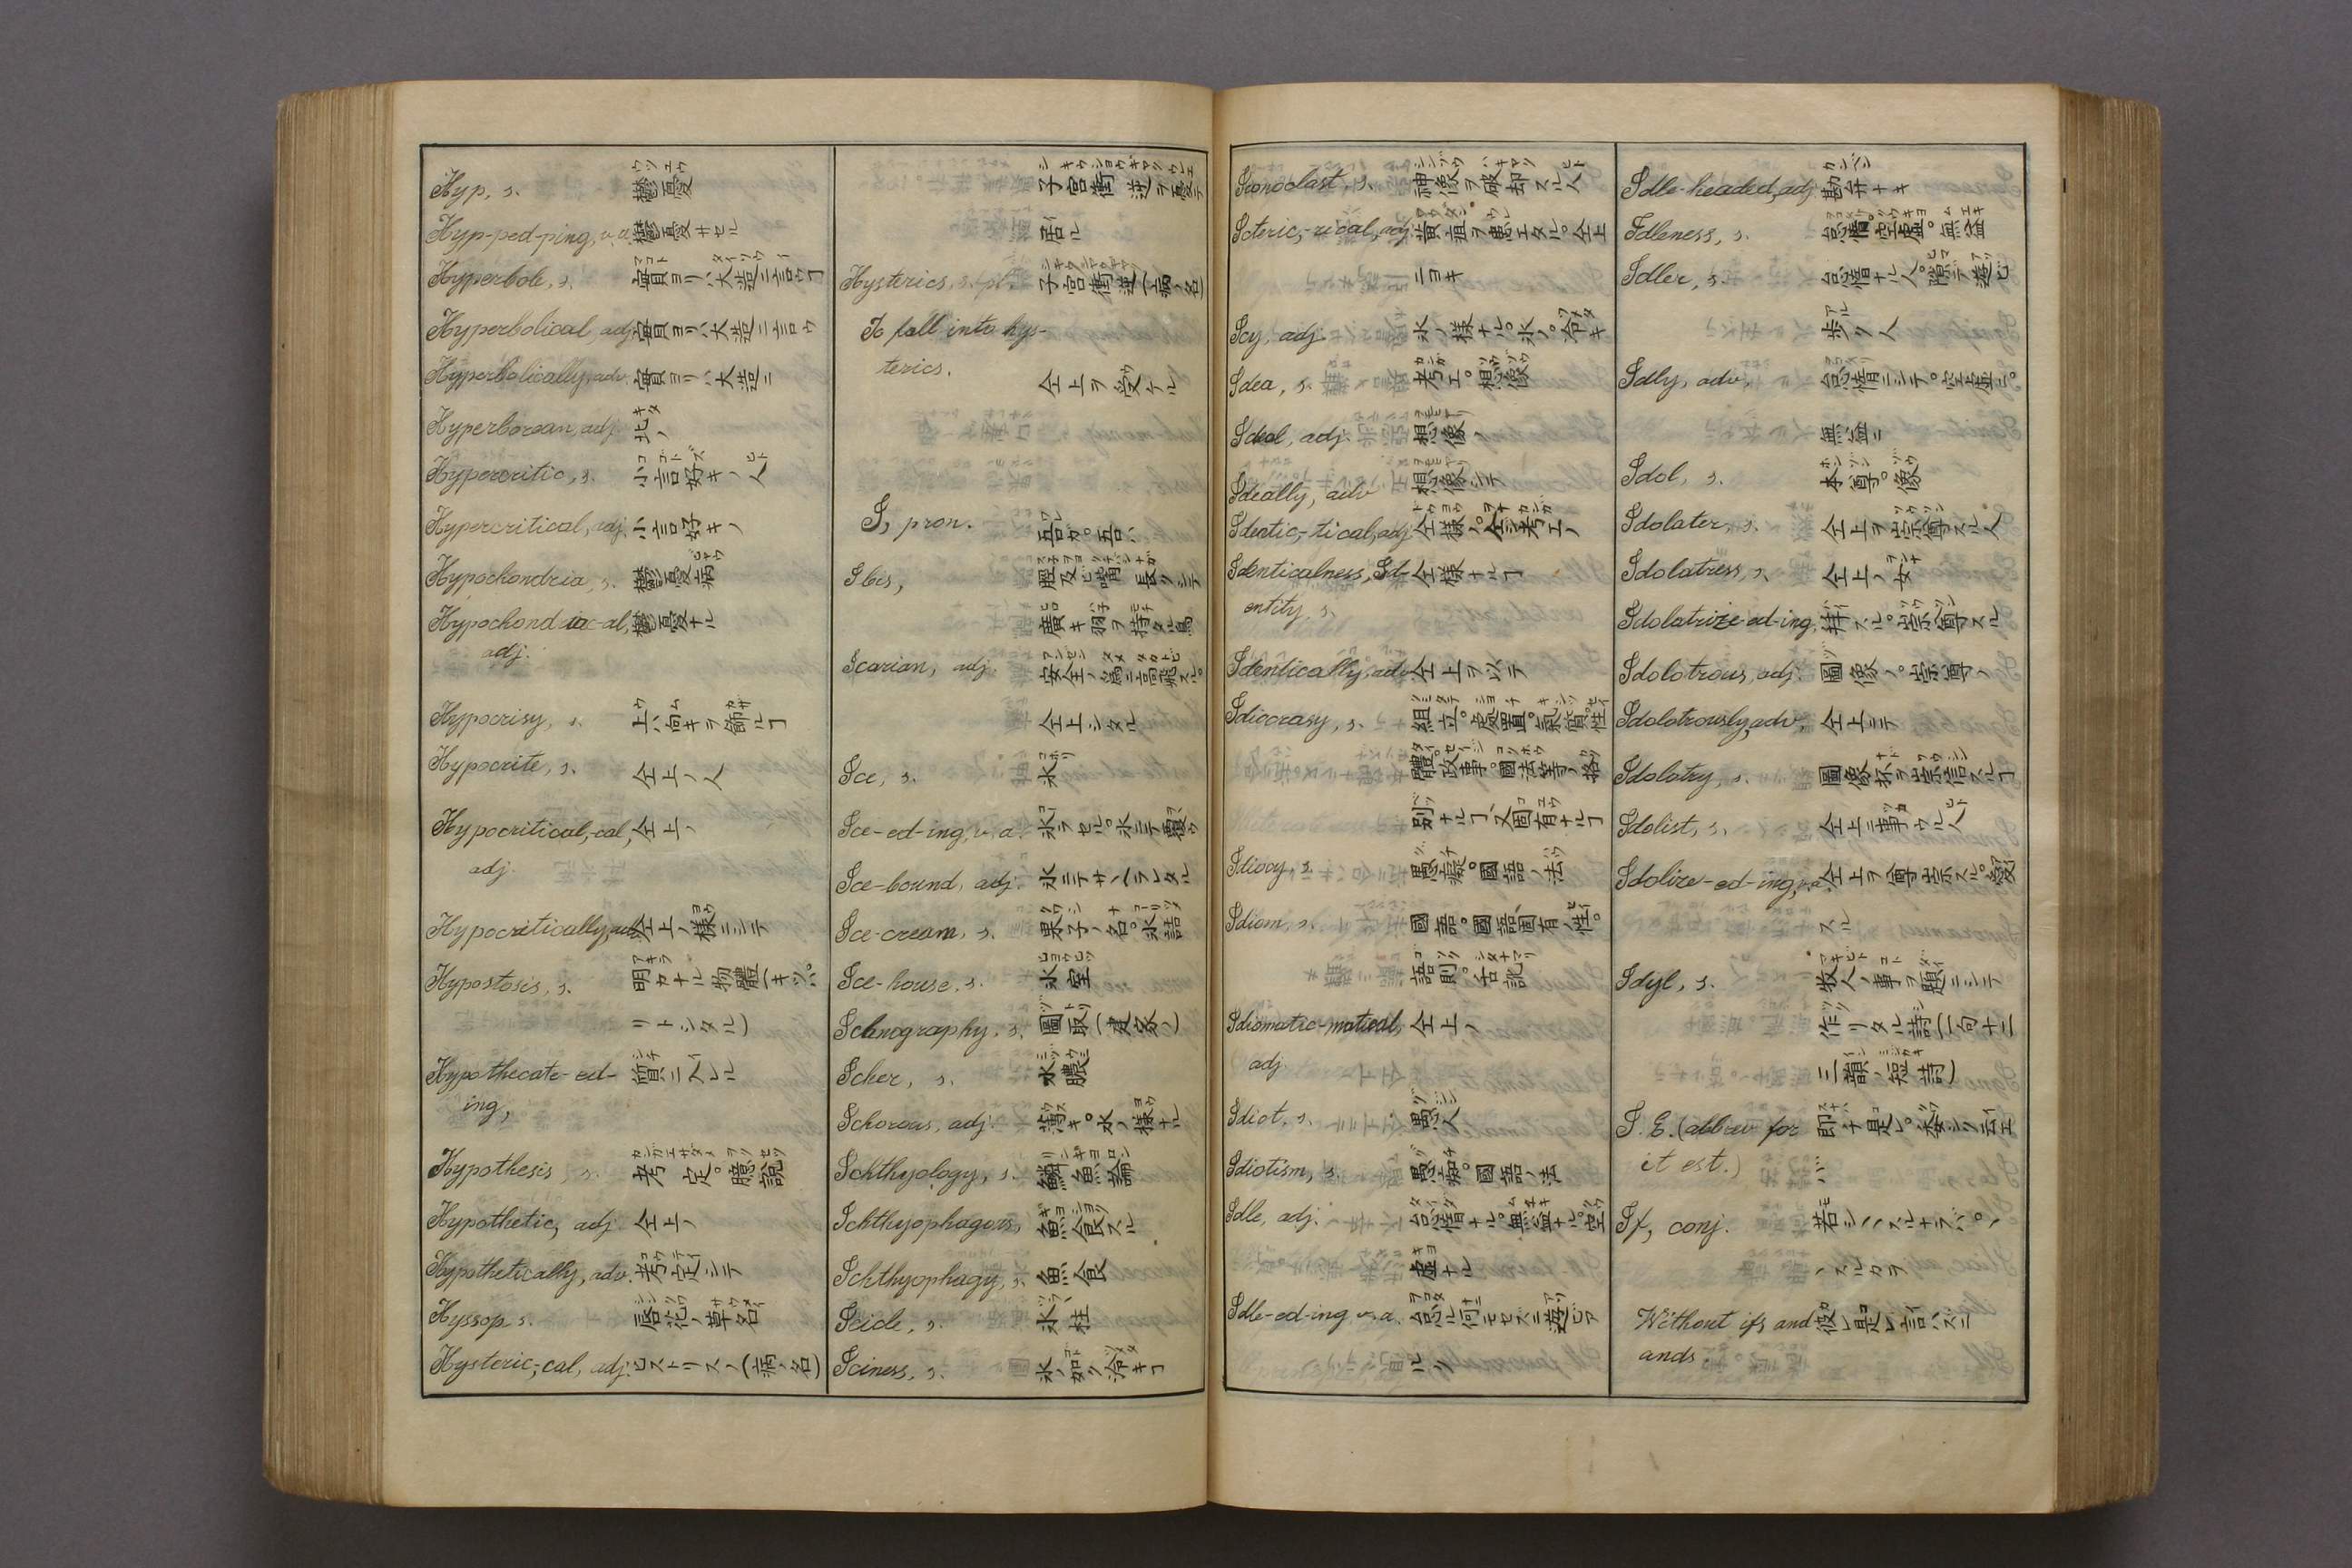 Hyp, s. 鬱憂
Hyp-ped-ping, v.a. 鬱憂サセル
Hyperbole, s. 實ヨリハ大造ニ言フヿ
Hyperbolical, adj. 實ヨリハ大造ニ言ウ
Hyperbolically, adv. 實ヨリハ大造ニ
Hyperborean, adj. 北ノ
Hypercritic, s. 小言好キノ人
Hypercritical, adj. 小言好キノ
Hypochondria, s. 鬱憂病
Hypochondriac-al, 鬱憂ナル
adj.
Hypocrisy, s. 上ハ向キヲ飾ルヿ
Hypocrite, s. 仝上ノ人
Hypocritical,-cal, 仝上ノ
adj.
Hypocritically, adv. 仝上ノ様ニシテ
Hypostosis, s. 明カナル物體(キツパ
リトシタル)
Hypothecate-ed- 質ニ入レル
ing,
Hypothesis, s. 考定。臆説
Hypothetic, adj. 仝上ノ
Hypothetically, adv. 考定シテ
Hyssop s. 唇花ノ草名
Hysteric,-cal, adj. ヒストリスノ(病ノ名)
子宮衝逆ヲ憂テ
居ル
Hysterics, s. pl. 子宮衝逆(病ノ名)
To fall into hys-
terics. 仝上ヲ受クル
I, pron. 吾ガ。吾ハ
Ibis, 脛及ビ嘴長クシテ
廣キ羽ヲ持タル鳥
Icarian, adj. 安全ノ為ニ高飛スル。
仝上シタル
Ice, s. 氷
Ice-ed-ing, v.a. 氷ラセル。氷ニテ覆ウ
Ice-bound, adj. 氷ニテサヽヘラレタル
Ice-cream, s. 果子ノ名。氷詰
Ice-house, s. 氷室
Ichnography, s. 圖取(建家ノ)
Icher, s. 水膿
Ichorous, adj. 薄キ。水ノ様ナル
Ichthyology, s. 鱗魚論
Ichthyophagous, 魚食スル
Ichthyophagy, s. 魚食
Icicle, s. 氷柱
Iciness, s. 氷ノ如ク冷キヿ
Iconoclast, s. 神像ヲ破却スル人
Icteric,-rical, adj. 黄疸ヲ患エタル。仝上
ニヨキ
Icy, adj. 氷ノ様ナル。氷ノ。冷キ
Idea, s. 考エ。想像
Ideal, adj. 想像ノ
Ideally, adv 想像シテ
Identic,-tical, adj. 仝様ノ。仝考エノ
Identicalness, Id- 仝様ナルヿ
entity, s.
Identically, adv 仝上ヲ以テ
Idiocrasy, s. 組立。處置。氣質。性
體。政事。國法等ノ格
別ナルヿ又固有ナルヿ
Idiocy, s. 愚癡。國語ノ法
Idiom, s. 國語。國語固有ノ性。
語則。舌訛
Idiomatic-matical, 仝上ノ
adj
Idiot, s. 愚人
Idiotism, s. 愚癡。國語ノ法
Idle, adj. 怠惰ナル。無益ナル。空
虚ナル
Idle-ed-ing v.a. 怠ル何モセズニ遊ビア
ルク
Idle-headed, adj 勘弁ナキ
Idleness, s. 怠惰。空虚。無益
Idler, s. 怠惰ナル人。隙ニテ遊ビ
歩ク人
Idly, adv. 怠惰ニシテ。空虚ニ。
無益ニ
Idol, s. 本尊。像
Idolater, s. 仝上ヲ崇尊スル人
Idolatress, s. 仝上ノ女
Idolatrize-ed-ing, 拝スル。崇尊スル
Idolotrous, adj. 圖像ノ。崇尊ノ
Idolotrously, adv. 仝上ニテ
Idolotry, s. 圖像抔ヲ崇信スルヿ
Idolist, s. 仝上ニ事ウル人
Idolize-ed-ing, v.a. 仝上ヲ尊崇スル。愛
スル
Idyl, s. 牧人ノ事ヲ題ニシテ
作リタル詩(一句十二
三韻ノ短詩)
I. E. (abbrev for 即ナ是レ。
it est.)
If, conj. 若シヽスルナラバ。ヽ
ヽスルカラ
Without ifs and 彼レ是レ言ハズニ
ands.